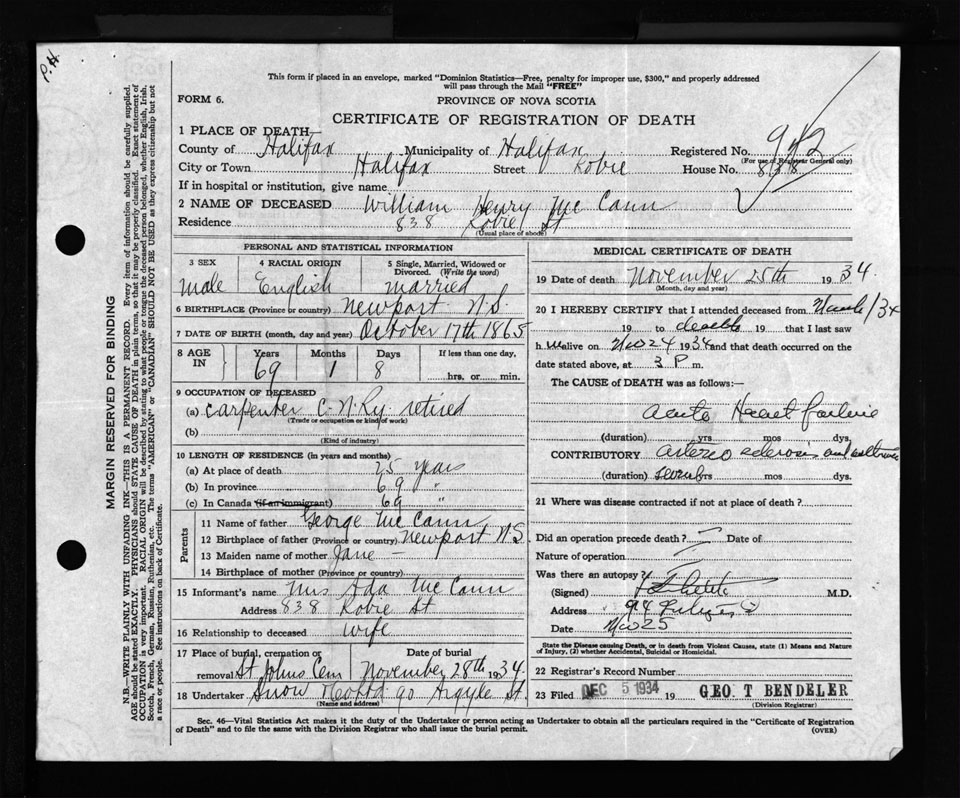 P.H
This form if placed in an envelope, marked "Dominion Statistics—Free, penalty for improper use, $300," and properly addressed
will pass through the Mail "FREE"
FORM 6.
PROVINCE OF NOVA SCOTIA
CERTIFICATE OF REGISTRATION OF DEATH
1 PLACE OF DEATH
County of Halifax Municipality of Halifax Registered No. 942
(For use of Registrar General only)
City or Town Halifax Street Robie House No. 838
If in hospital or institution, give name
2 NAME OF DECEASED William Henry McCann
Residence 838 Robie St
(Usual place of abode)
PERSONAL AND STATISTICAL INFORMATION
3 SEX 4 RACIAL ORIGIN 5 Single, Married, Widowed or
Divorced. (Write the word)
male English married
6 BIRTHPLACE (Province or country) Newport N.S.
7 DATE OF BIRTH (month, day and year) October 17th 1865
8 AGE IN Years Months Days If less than one day,
69 1 8 hrs. or min.
9 OCCUPATION OF DECEASED
(a) Carpenter C.N.Ry. retired
(Trade or occupation or kind of work)
(b)
(Kind of industry)
10 LENGTH OF RESIDENCE (in years and months)
(a) At place of death 25 years
(b) In province 69 "
(c) In Canada (if an immigrant) 69 "
Parents
11 Name of father George McCann
12 Birthplace of father (Province or country) Newport N.S.
13 Maiden name of mother Jane —
14 Birthplace of mother (Province or country)
15 Informant's name Mrs Ada McCann
Address 838 Robie St
16 Relationship to deceased wife
17 Place of burial, cremation or Date of burial
removal St Johns Cem November 28th 1934
18 Undertaker Snow & Co Ltd 90 Argyle St.
(Name and address)
MEDICAL CERTIFICATE OF DEATH
19 Date of death November 25th 1934.
(Month, day and year)
20 I HEREBY CERTIFY that I attended deceased from /34
19 to death 19 that I last saw
h im alive on Nov 24 1934 and that death occurred on the
date stated above, at 3 P m.
The CAUSE of DEATH was as follows:—
Acute Heart failure
(duration) yrs mos dys.
CONTRIBUTORY Arterio sclerosis and
(duration) yrs mos dys.
21 Where was disease contracted if not at place of death?
Did an operation precede death? Date of
Nature of operation
Was there an autopsy?
(Signed) M.D.
Address 94
Date Nov 25
State the Disease causing Death, or in death from Violent Causes, state (1) Means and Nature
of Injury, (2) whether Accidental, Suicidal or Homicidal.
22 Registrar's Record Number
23 Filed DEC 5 1934 19 GEO. T BENDELER
(Division Registrar)
Sec. 46—Vital Statistics Act makes it the duty of the Undertaker or person acting as Undertaker to obtain all the particulars required in the "Certificate of Registration
of Death" and to file the same with the Division Registrar who shall issue the burial permit. (OVER)
MARGIN RESERVED FOR BINDING
N.B.—WRITE PLAINLY WITH UNFADING INK—THIS IS A PERMANENT RECORD. Every item of information should be carefully supplied.
AGE should be stated EXACTLY. PHYSICIANS should STATE CAUSE OF DEATH in plain terms, so that it may be properly classified. Exact statement of
OCCUPATION is very important. RACIAL ORIGIN will be described by stating to what people or tongue the deceased person belonged, whether English, Irish,
Scotch, French, German, Russian, Ruthenian, etc. The terms "AMERICAN" or "CANADIAN" SHOULD NOT BE USED as they express citizenship but not
a race or people. See instructions on back of Certificate.